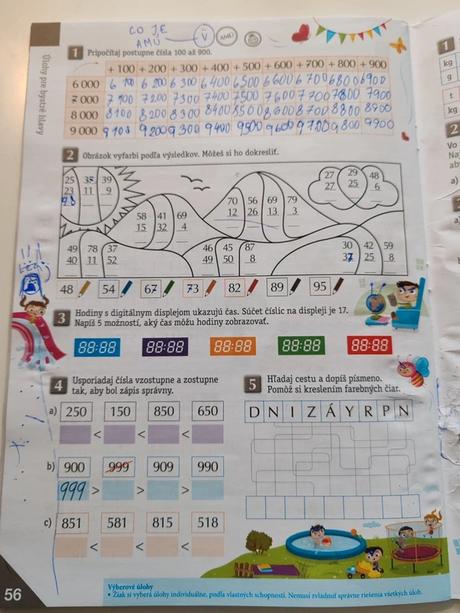 ČO JE
AMU
V
AMU
Úlohy pre bystré hlavy
1 Pripočítaj postupne čísla 100 až 900.
+ 100 + 200 + 300 + 400 + 500 + 600 + 700 + 800 + 900
6 000 6 100 6 200 6 300 6 400 6500 6600 6700 6800 6900
7 000 7 100 7200 7300 7400 7500 7600 7700 7800 7900
8 000 8 100 8200 8 300 8400 8500 8600 8700 8800 8900
9 000 9 100 9200 9300 9400 9500 9600 9700 9800 9900
2 Obrázok vyfarbi podľa výsledkov. Môžeš si ho dokresliť.
25 35 39
23 11 9
27 29 48
27 25 6
70 56 69 79
12 26 13 3
58 41 69
15 32 4
49 78 37
40 11 52
46 45 87
49 50 8
30 42 59
37 25 8
48 54 67 73 82 89 95
3 Hodiny s digitálnym displejom ukazujú čas. Súčet číslic na displeji je 17.
Napíš 5 možností, aký čas môžu hodiny zobrazovať.
88:88 88:88 88:88 88:88 88:88
4 Usporiadaj čísla vzostupne a zostupne
tak, aby bol zápis správny.
a) 250 150 850 650
< < <
b) 900 999 909 990
999 > > >
c) 851 581 815 518
< < <
5 Hľadaj cestu a dopíš písmeno.
Pomôž si kreslením farebných čiar.
D N I Z Á Y R P N
56
Výberové úlohy
• Žiak si vyberá úlohy individuálne, podľa vlastných schopností. Nemusí zvládnuť správne riešenia všetkých úloh.
1
kg
g
t
kg
2
Vo
Na
ab
a)